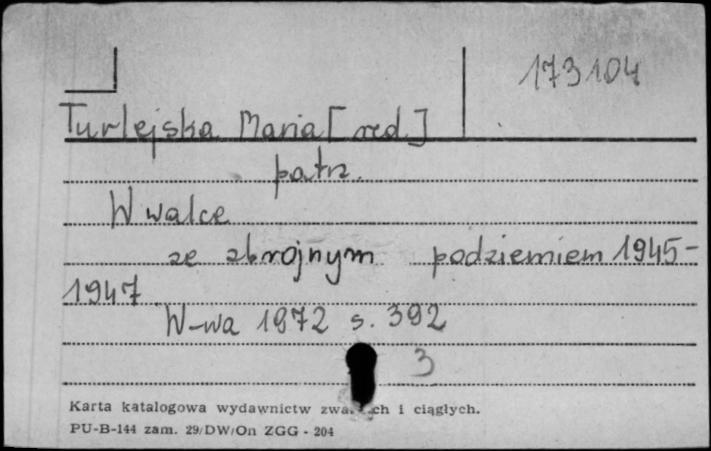 173104
Turlejska Maria [red.]
patrz.
W walce
ze zbrojnym podziemiem 1945-
1947
W-wa 1972 s. 392
3
Karta katalogowa wydawnictw i ciągłych.
PU-B-144 zam. 29/DW/On ZGG - 204